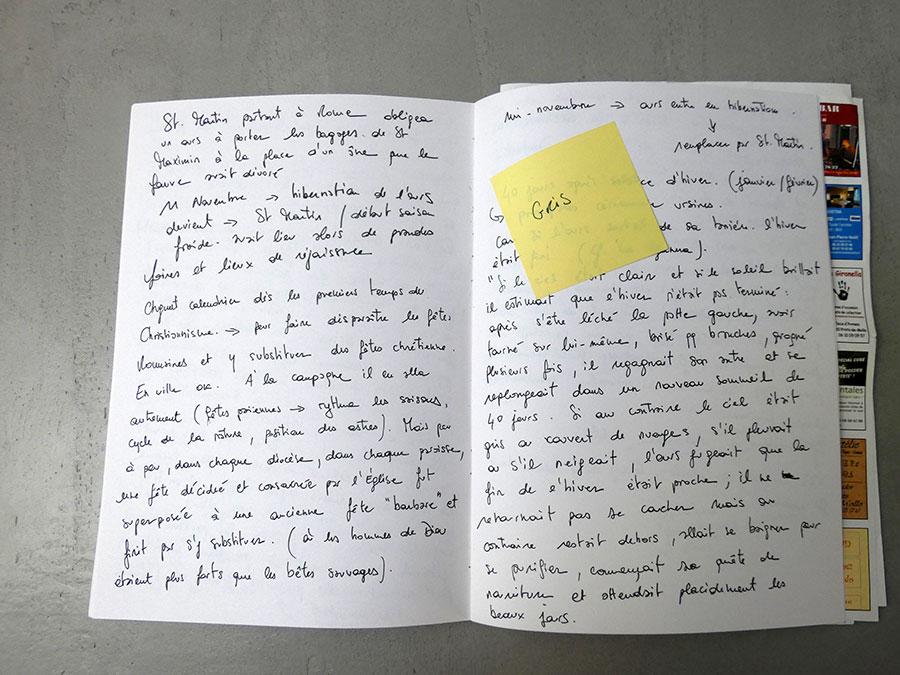 St. Martin partant à Rome obligea
un ours à porter les bagages de St
Maximin à la place d'un âne que le
fauve avait dévoré
11 Novembre → hibernation de l'ours
devient → St Martin / début saison
froide. avait lieu alors de grandes
foires et lieux de réjouissance
calendrier dès les premiers temps du
Christianisme. → pour faire disparaître les fêtes
Romaines et y substituer des fêtes chrétienne.
En ville ok. À la campagne il en alla
autrement (fêtes païennes → rythme les saisons,
cycle de la nature, position des astres). Mais peu
à peu, dans chaque diocèse, dans chaque paroisse,
une fête décidée et consacrée par l'Église fut
superposée à une ancienne fête "barbare" et
finit par s'y substituer. (où les hommes de Dieu
étaient plus forts que les bêtes sauvages).
mi-novembre → ours entre en hibernation
↓
remplacer par St. Martin.
40 jours après d'hiver. (janvier/février)
ursines.
de sa tanière. l'hiver
était
GRIS
"Si le clair et si le soleil brillait
il estimait que l'hiver n'était pas terminé :
après s'être léché la patte gauche, avoir
tourné sur lui-même, brisé qq branches, grogné
plusieurs fois, il regagnait son antre et se
replongeait dans un nouveau sommeil de
40 jours. Si au contraire le ciel était
gris ou couvert de nuages, s'il pleuvait
ou s'il neigeait, l'ours jugeait que la
fin de l'hiver était proche ; il ne
retournait pas se coucher mais au
contraire restait dehors, allait se baigner pour
se purifier, commençait sa quête de
nourriture et attendait placidement les
beaux jours.
BAR
Gironella